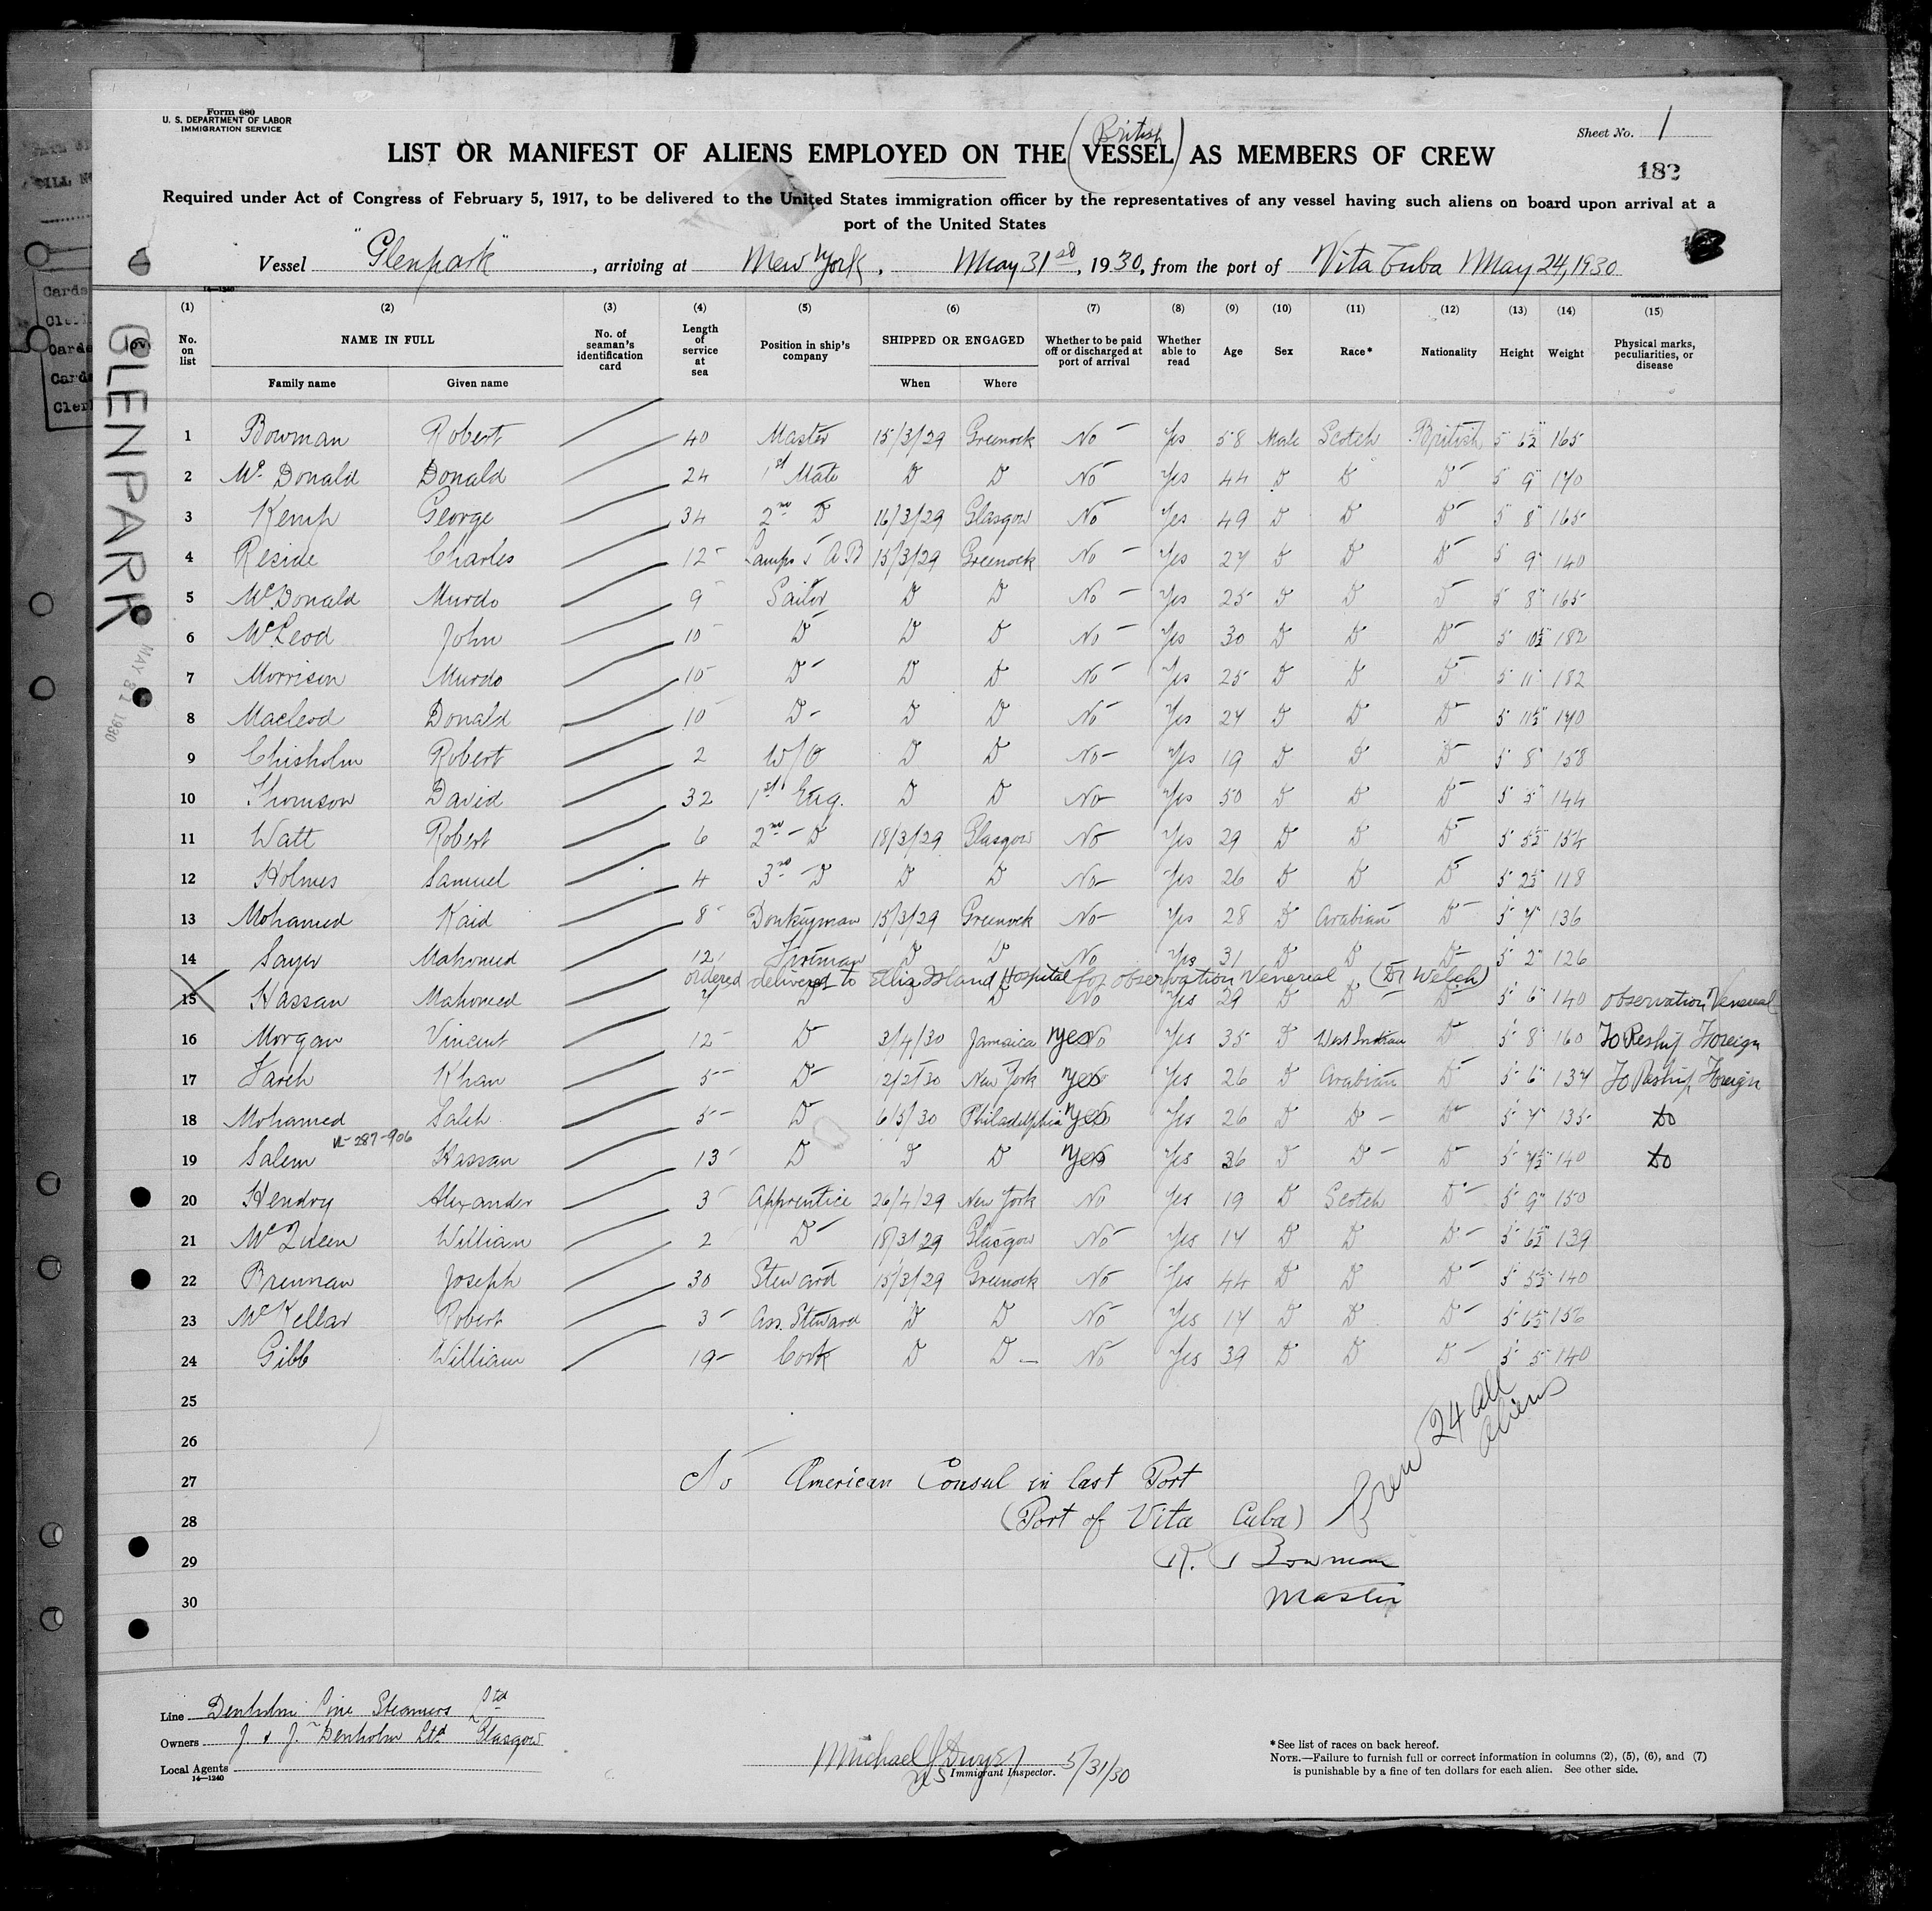 Form 680
U. S. DEPARTMENT OF LABOR
IMMIGRATION SERVICE
Sheet No. 1
182
(British)
LIST OR MANIFEST OF ALIENS EMPLOYED ON THE VESSEL AS MEMBERS OF CREW
Required under Act of Congress of February 5, 1917, to be delivered to the United States immigration officer by the representatives of any vessel having such aliens on board upon arrival at a
port of the United States
Vessel "Glenpark", arriving at New York, May 31st, 1930, from the port of Vita Cuba May 24, 1930
14—1240
(1) (2) (3) (4) (5) (6) (7) (8) (9) (10) (11) (12) (13) (14) (15)
No. on list NAME IN FULL No. of seaman's identification card Length of service at sea Position in ship's company SHIPPED OR ENGAGED Whether to be paid off or discharged at port of arrival Whether able to read Age Sex Race* Nationality Height Weight Physical marks, peculiarities, or disease
Family name Given name When Where
1 Bowman Robert 40 Master 15/3/29 Greenock No Yes 58 Male Scotch British 5 6½" 165
2 Mc Donald Donald 24 1st Mate D D No Yes 44 D D D 5 9" 170
3 Kemp George 34 2nd D 16/3/29 Glasgow No Yes 49 D D D 5 8" 165
4 Reside Charles 12 Lamps & AB 15/3/29 Greenock No Yes 27 D D D 5 9" 140
5 McDonald Murdo 9 Sailor D D No Yes 25 D D D 5 8" 165
6 McLeod John 10 D D D No Yes 30 D D D 5 10½" 182
7 Morrison Murdo 10 D D D No Yes 25 D D D 5 11 182
8 Macleod Donald 10 D D D No Yes 24 D D D 5 11½" 170
9 Chisholm Robert 2 W/O D D No Yes 19 D D D 5 8" 158
10 Thomson David 32 1st Eng. D D No Yes 50 D D D 5 5" 144
11 Watt Robert 6 2nd D 18/3/29 Glasgow No Yes 29 D D D 5 5½" 154
12 Holmes Samuel 4 3rd D D D No Yes 26 D D D 5 2½" 118
13 Mohamed Kaid 8 Donkeyman 15/3/29 Greenock No Yes 28 D Arabian D 5 7" 136
14 Sayer Mahomed 12 Fireman D D No Yes 31 D D D 5 2" 126
ordered delivered to Ellis Island Hospital for observation Venereal (Dr Welch)
15 Hassan Mahomed 7 D D No Yes 29 D D D 5 6" 140 observation Venereal
16 Morgan Vincent 12 D 3/4/30 Jamaica yes No Yes 35 D West Indian D 5 8" 160 To Reship Foreign
17 Fareh Khan 5 D 12/2/30 New York yes Yes 26 D Arabian D 5 6" 137 To Reship Foreign
18 Mohamed Saleh 5 D 6/5/30 Philadelphia yes Yes 26 D D D 5 7" 135 Do
287-906
19 Salem Hassan 13 D D D yes Yes 36 D D D 5 7½" 140 Do
20 Hendry Alexander 3 Apprentice 26/4/29 New York No Yes 19 D Scotch D 5 9" 150
21 McQueen William 2 D 18/3/29 Glasgow No Yes 17 D D D 5 6½" 139
22 Brennan Joseph 30 Steward 15/3/29 Greenock No Yes 44 D D D 5 5½" 140
23 McKellar Robert 3 Ass. Steward D D No Yes 17 D D D 5 6½" 156
24 Gibb William 19 Cook D D No Yes 39 D D D 5 5" 140
25
26
27
28
29
30
Crew 24 all
aliens
No American Consul in last Port
(Port of Vita Cuba)
Bowman
Master
GLENPARK
MAY 31 1930
Line Denholm Line Steamers Ltd
Owners J. & J. Denholm Ltd Glasgow
Local Agents
14—1240
Michael J Dwyer 5/31/30
US Immigrant Inspector.
*See list of races on back hereof.
NOTE.—Failure to furnish full or correct information in columns (2), (5), (6), and (7)
is punishable by a fine of ten dollars for each alien. See other side.